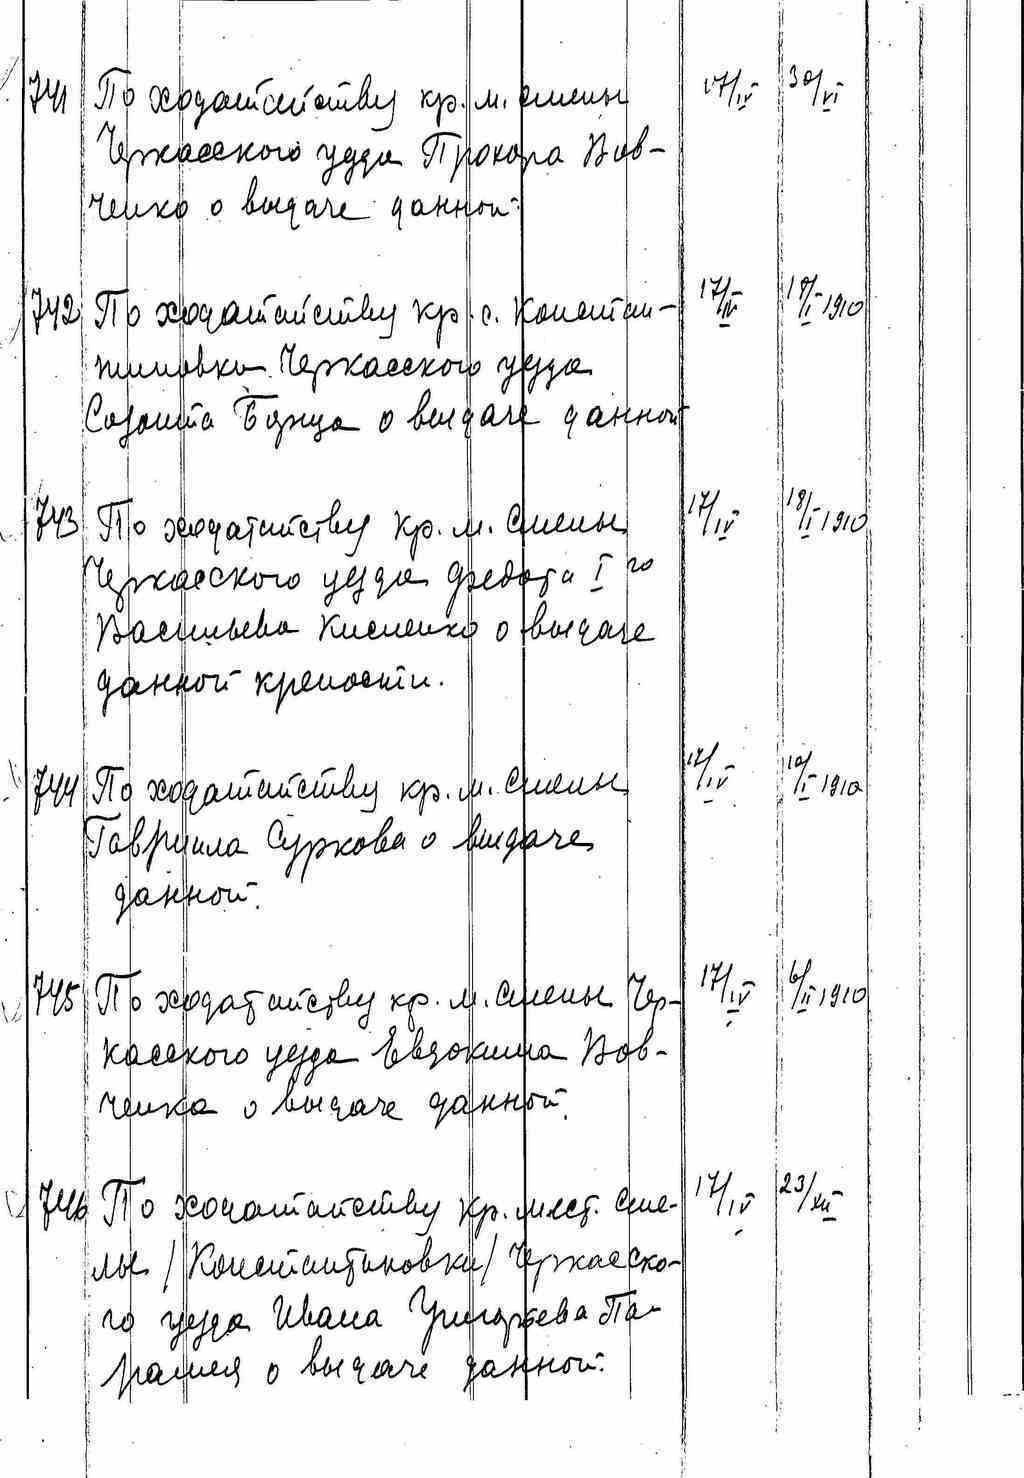 741 По ходатайству кр. м. Смелы 17/IV 30/VI
Черкасского уезда Прохора Вов-
ченко о выдаче данной.
742 По ходатайству кр. с. Констан- 17/IV 19/I 1910
тиновки Черкасского уезда
Созонта о выдаче данной
743 По ходатайству кр. м. Смелы 17/IV 18/I 1910
Черкасского уезда Федота I го
Васильева Кисленко о выдаче
данной крепости.
744 По ходатайству кр. м. Смелы 17/IV 10/I 1910
Гавриила Суркова о выдаче
данной.
745 По ходатайству кр. м. Смелы Чер- 17/IV 6/II 1910
касского уезда Евдокима Вов-
ченка о выдаче данной.
746 По ходатайству кр. мест. Сме- 17/IV 23/XII
лы /Константиновки/ Черкасско-
го уезда Ивана Григорьева
о выдаче данной.